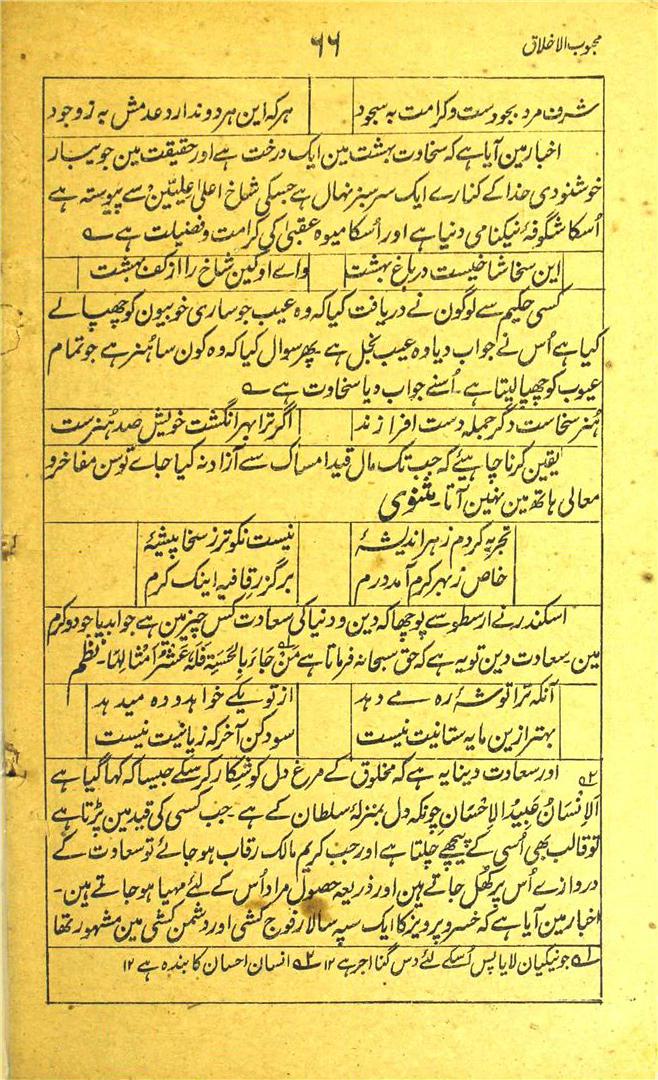 محبوب الاخلاق
۶۶
شرف مرد بجودست و کرامت به سجود ہرکہ این ہر دو ندارد عدمش بہ ز وجود
اخبار مین آیا ہے کہ سخاوت بہشت مین ایک درخت ہے اور حقیقت مین جویبار
خوشنودی خدا کے کنارے ایک سرسبز نہال ہے جسکی شاخ اعلیٰ علیین سے پیوستہ ہے
اُسکا شگوفۂ نیکنامی دنیا ہے اور اُسکا میوہ عقبیٰ کی کرامت و فضیلت ہے ؎
این سخا شاخیست در باغ بہشت واے او کین شاخ را از کف بہشت
کسی حکیم سے لوگون نے دریافت کیا کہ وہ عیب جو ساری خوبیون کو چھپا لے
کیا ہے اُس نے جواب دیا وہ عیب بخل ہے پھر سوال کیا کہ وہ کون سا ہنر ہے جو تمام
عیوب کو چھپا لیتا ہے۔ اُسنے جواب دیا سخاوت ہے ؎
ہنر سخاست دگر جملہ دست افزارند اگر ترا بہر انگشت خویش صد ہنرست
یقین کرنا چاہیئے کہ جب تک مال قید امساک سے آزاد نہ کیا جاے توسن مفاخر و
معالی ہاتھ مین نہین آتا۔ مثنوی
تجربہ کردم ز ہر اندیشۂ نیست نکوتر ز سخا پیشۂ
خاص ز بہر کرم آمد درم بر گزر قافیہ اینک کرم
اسکندر نے ارسطو سے پوچھا کہ دین و دنیا کی سعادت کس چیز مین ہے جواب دیا جود و کرم
مین۔ سعادت دین تو یہ ہے کہ حق سبحانہ فرماتا ہے مَنْ جَاءَ بِالْحَسَنَةِ فَلَهٗ عَشْرُ اَمْثَالِهَا۔ نظم
آنکہ ترا توشۂ رہ مے دہد از تو یکے خواہد و دہ میدہد
بہتر ازین مایہ ستانیت نیست سود کن آخر کہ زیانیت نیست
۲؎ اور سعادت دنیا یہ ہے کہ مخلوق کے مرغ دل کو شکار کرسکے جیسا کہ کہا گیا ہے
اَلْاِنْسَانُ عَبِیْدُ الْاِحْسَانِ چونکہ دل بمنزلۂ سلطان کے ہے۔ جب کسی کی قید مین پڑتا ہے
تو قالب بھی اُسی کے پیچھے چلتا ہے اور جب کریم مالک رقاب ہو جائے تو سعادت کے
دروازے اُس پر کھل جاتے ہین اور ذریعہ حصول مراد اُس کے لئے مہیا ہو جاتے ہین۔
اخبار مین آیا ہے کہ خسرو پرویز کا ایک سپہ سالار فوج کشی اور دشمن کشی مین مشہور تھا
۱؎ جو نیکیان لایا پس اُسکے لئے دس گنا اجر ہے ۱۲ ۲؎ انسان احسان کا بندہ ہے ۱۲